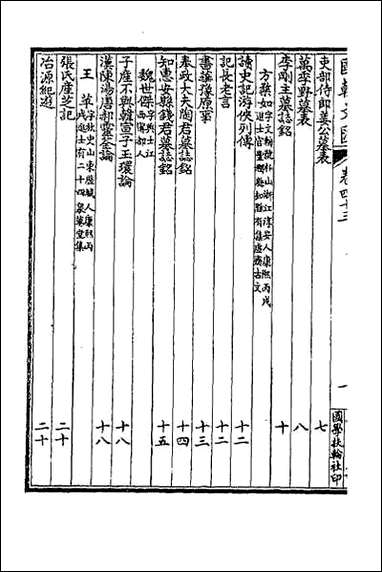 國朝文匯 卷四十三 一 國學扶輪社印
吏部侍郎姜公墓表 七
萬季野墓表 八
李剛主墓誌銘 十
方葇如 字文輈號朴山浙江淳安人康熙丙戌
進士官豐潤知縣有集虛齋古文
讀史記游俠列傳 十二
記長老言 十二
書謙豫原筆 十三
奉政大夫陶君墓誌銘 十四
知惠安縣錢君墓誌銘 十五
魏世傑 字興士江西寧都人
子產不與韓宣子玉環論 十八
漢陳湯唐郝靈荃論 十八
王苹 字秋史山東歷城人康熙丙
戌進士有二十四泉草堂集
張氏產芝記 二十
冶源紀遊 二十